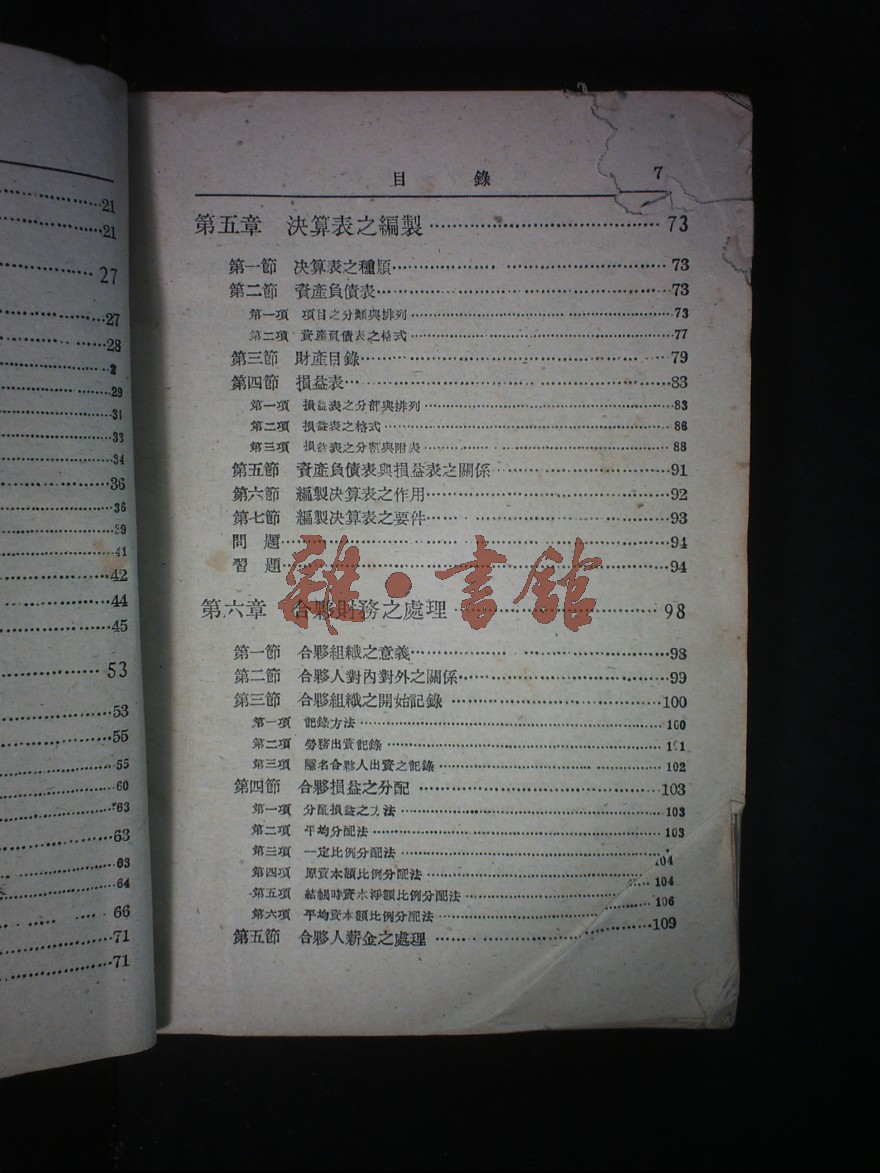 21
21
27
27
28
2
29
31
33
34
36
36
39
41
42
44
45
53
53
55
55
60
63
63
63
64
66
71
71
目 錄 7
第五章 決算表之編製 73
第一節 决算表之種類 73
第二節 資產負債表 73
第一項 項目之分類與排列 73
第二項 資產負債表之格式 77
第三節 財產目錄 79
第四節 損益表 83
第一項 損益表之分部與排列 83
第二項 損益表之格式 86
第三項 損益表之分割與附表 88
第五節 資產負債表與損益表之關係 91
第六節 編製决算表之作用 92
第七節 編製决算表之要件 93
問 題 94
習 題 94
雜·書館
第六章 合夥財務之處理 98
第一節 合夥組織之意義 98
第二節 合夥人對內對外之關係 99
第三節 合夥組織之開始記錄 100
第一項 記錄方法 100
第二項 勞務出資記錄 101
第三項 匿名合夥人出資之記錄 102
第四節 合夥損益之分配 103
第一項 分配損益之方法 103
第二項 平均分配法 103
第三項 一定比例分配法 104
第四項 原資本額比例分配法 104
第五項 結帳時資本淨額比例分配法 106
第六項 平均資本額比例分配法
第五節 合夥人薪金之處理 109